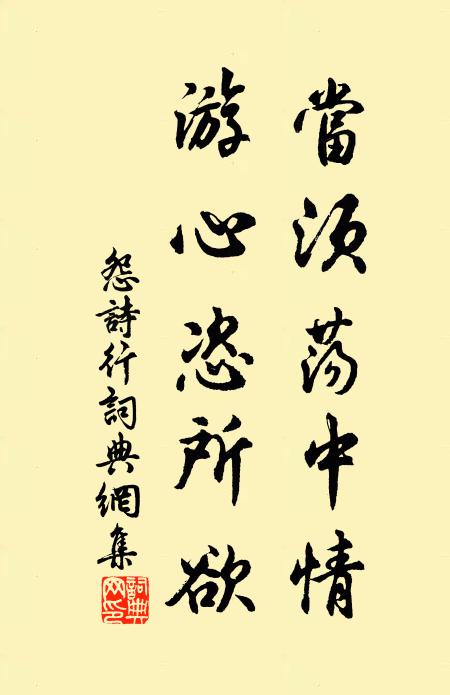 當須蕩中情
游心恣所欲
怨詩行詞典網集
詞典網印